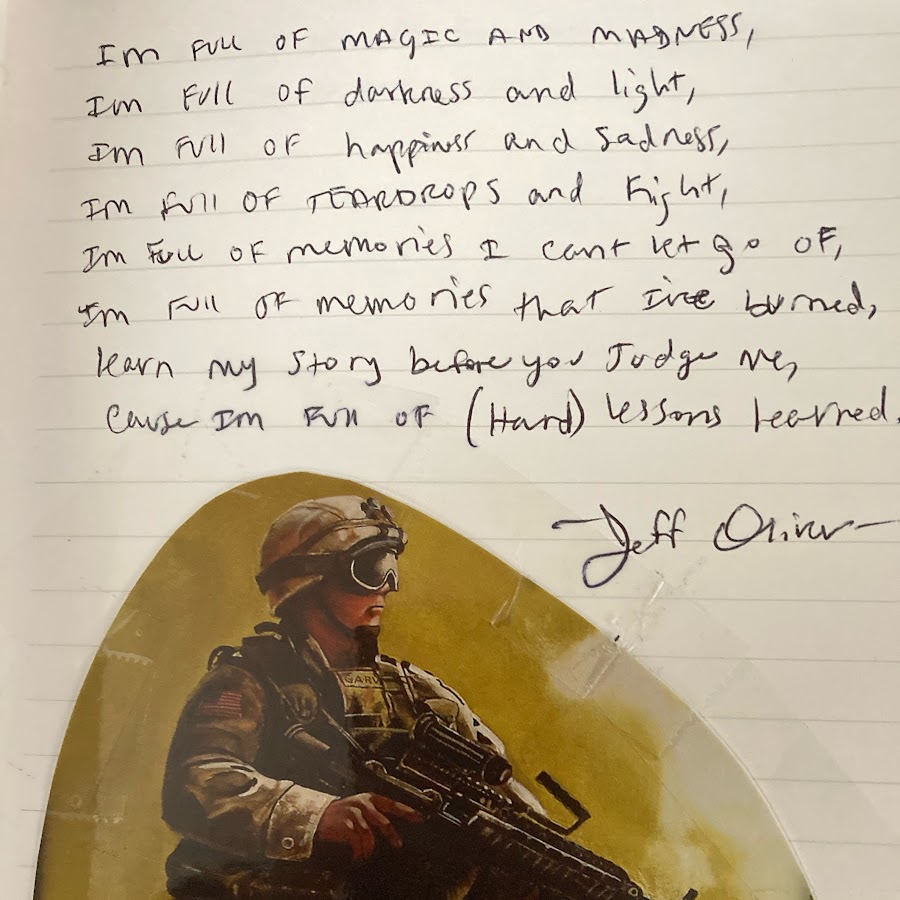 Im FULL OF MAGIC AND MADNESS,
Im FUll OF darkness and light,
Im FUll OF happiness and Sadness,
Im FUll OF TEARDROPS and Fight,
Im Full OF memories I cant let go OF,
Im FUll OF memories that I've burned,
learn my Story before you Judge me,
Cause Im FUll OF (Hard) lessons learned.
-Jeff Oliver-
GARV